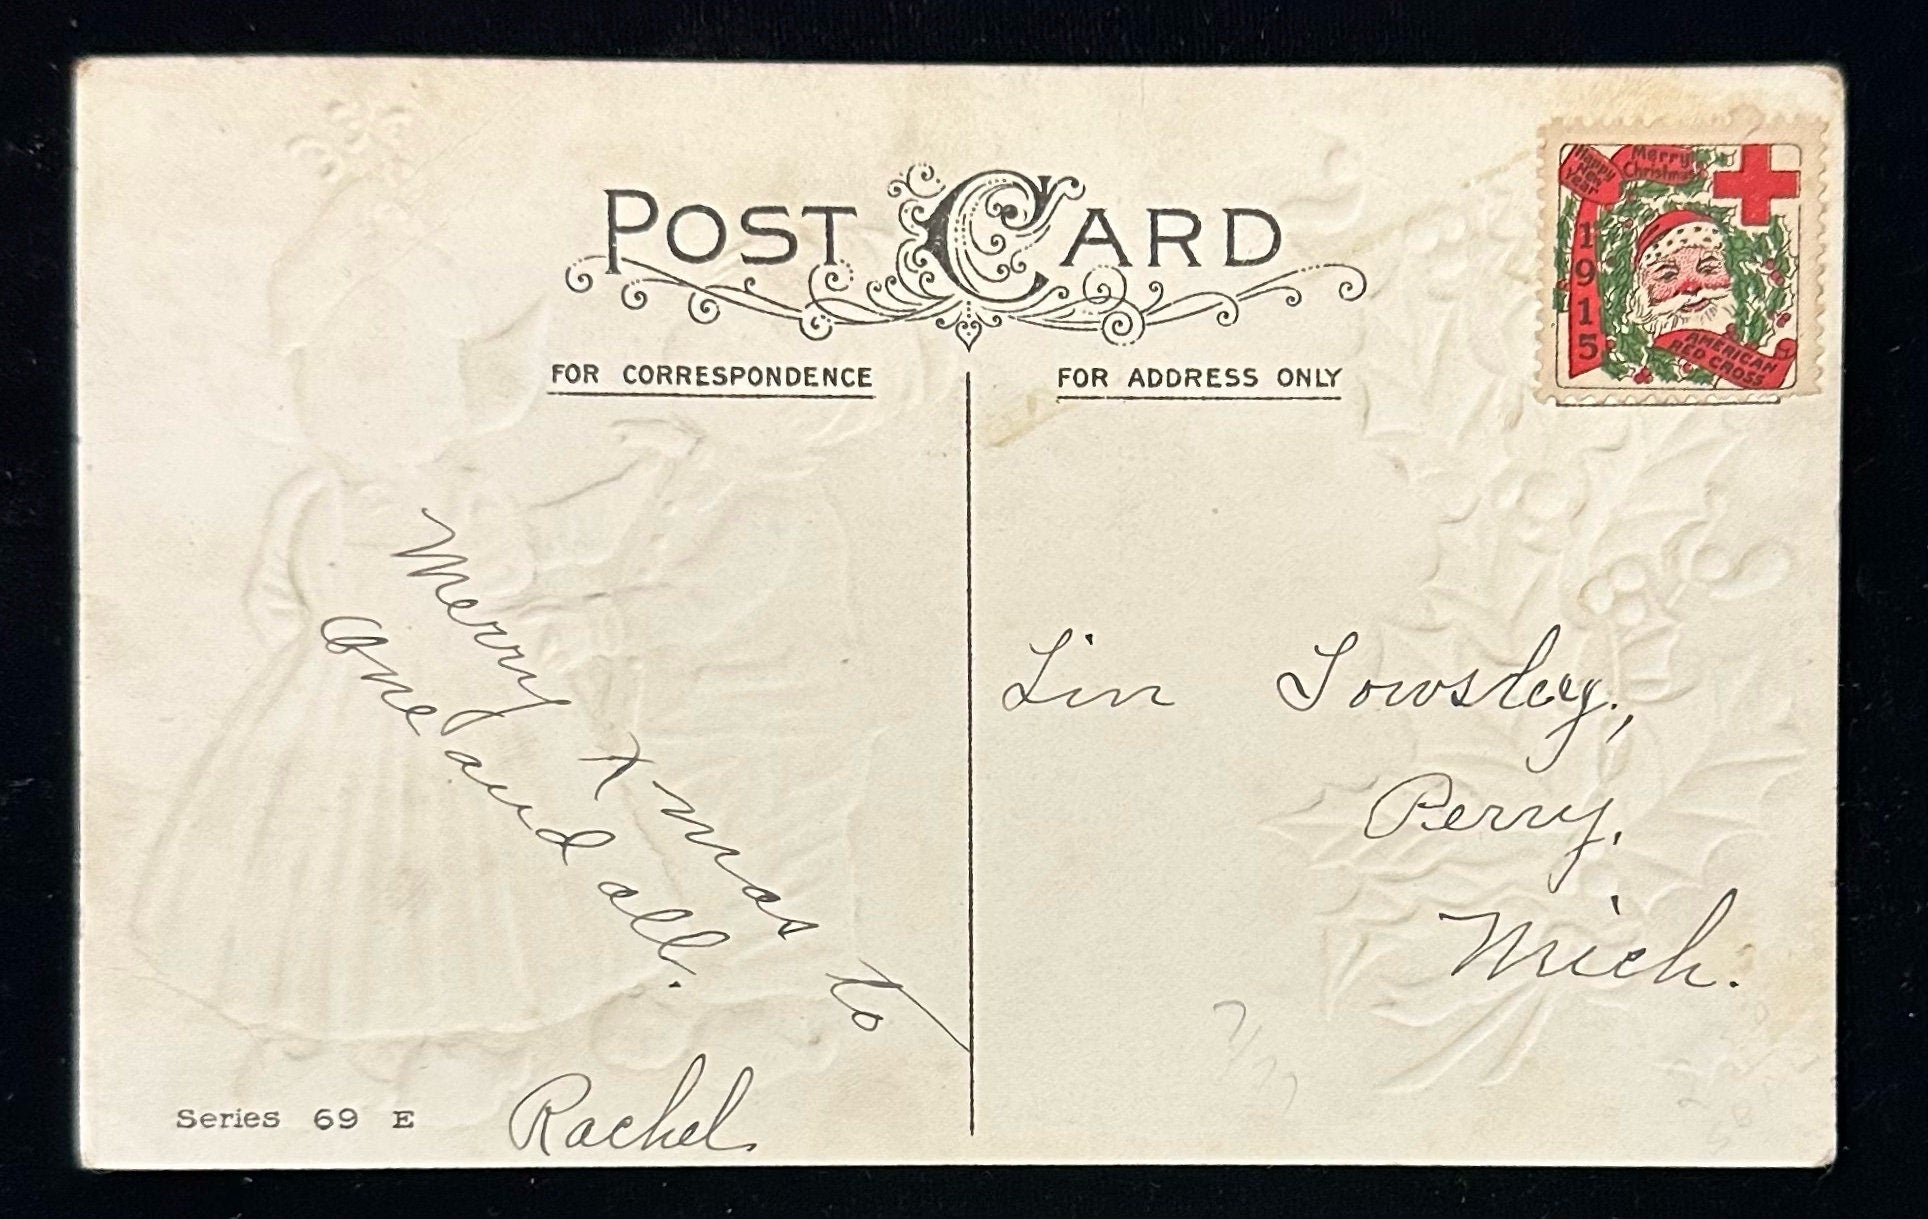 POST CARD
Happy
New
Year
Merry
Christmas
1915
AMERICAN
RED CROSS
FOR CORRESPONDENCE
FOR ADDRESS ONLY
Merry Xmas to
one and all.
Rachel
Lin Towsley,
Perry,
Mich.
Series 69 E